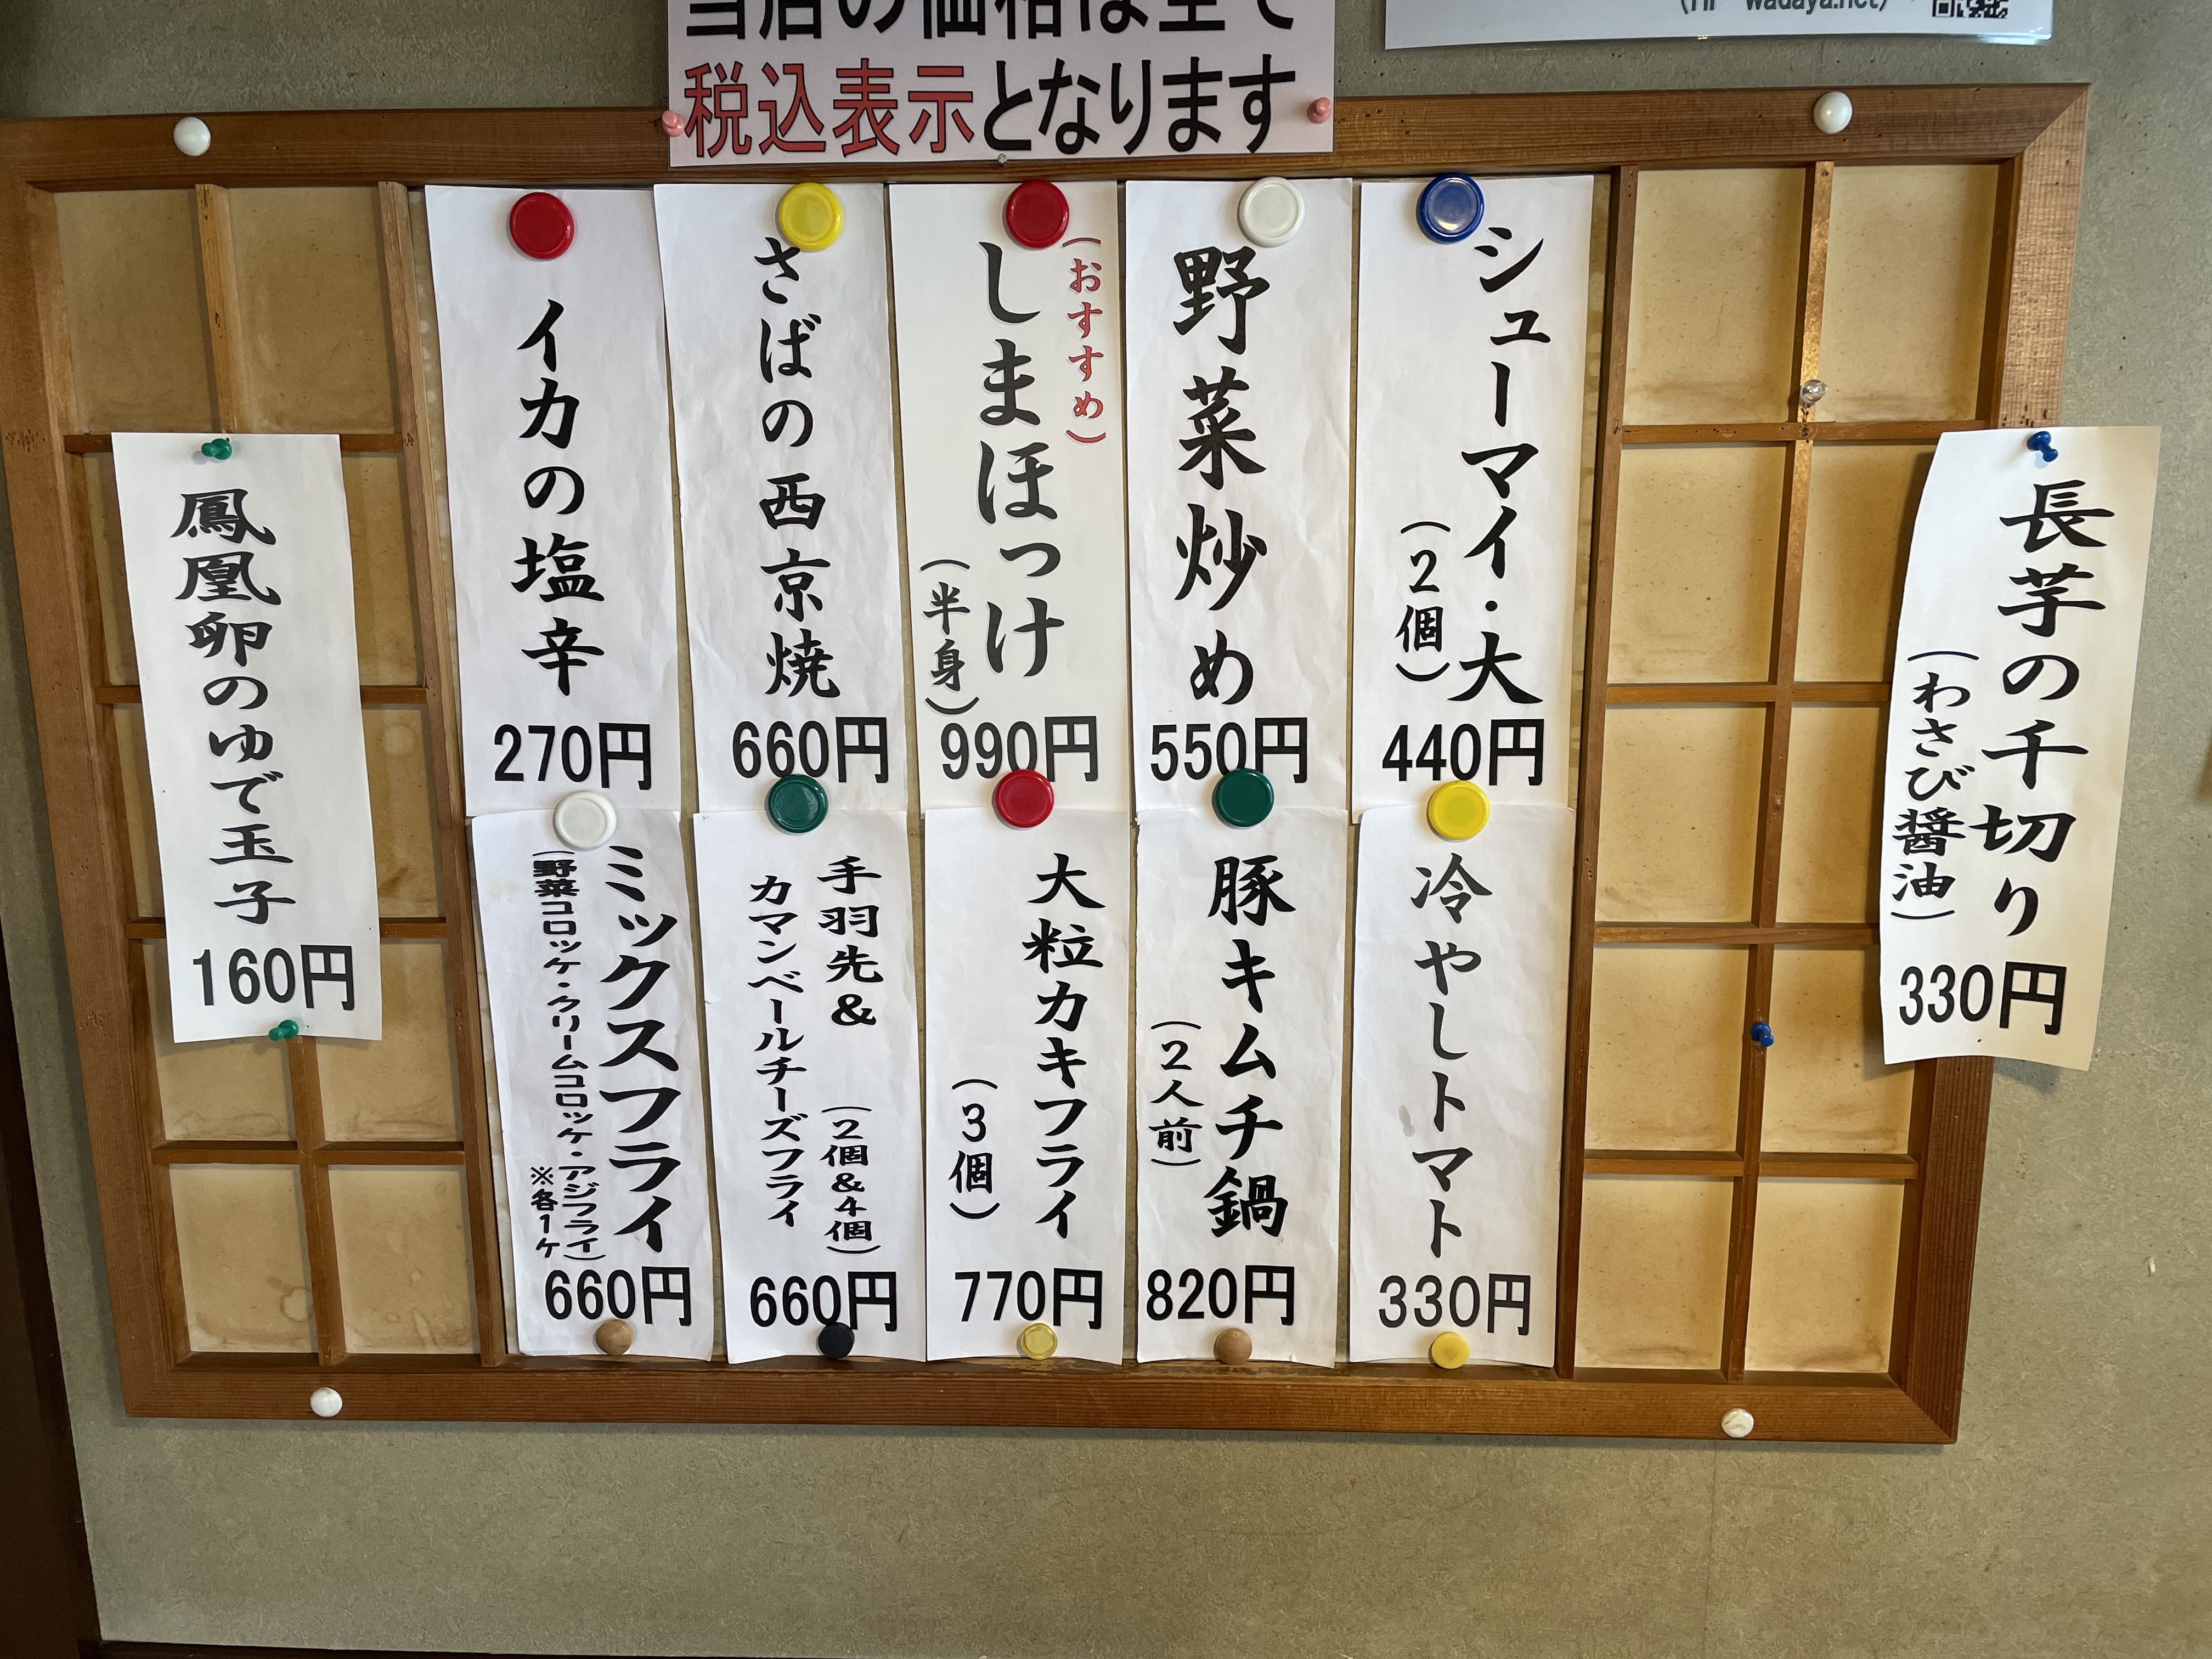 当店の価格は全て
税込表示となります
(HP wadaya.net)
長芋の千切り
(わさび醤油)
330円
シューマイ・大
(2個)
440円
野菜炒め
550円
(おすすめ)
しまほっけ
(半身)
990円
さばの西京焼
660円
イカの塩辛
270円
冷やしトマト
330円
豚キムチ鍋
(2人前)
820円
大粒カキフライ
(3個)
770円
手羽先&
カマンベールチーズフライ
(2個&4個)
660円
ミックスフライ
(野菜コロッケ・クリームコロッケ・アジフライ)
※各1ケ
660円
鳳凰卵のゆで玉子
160円